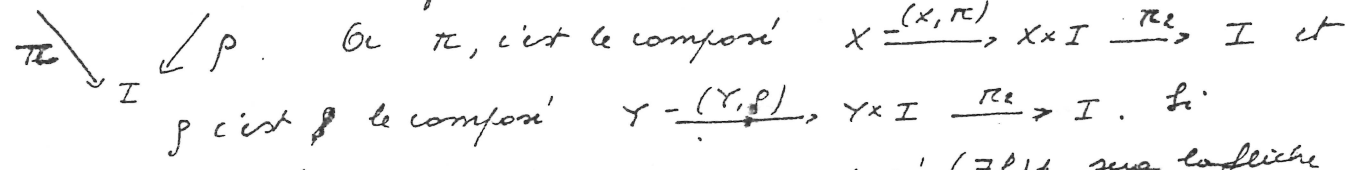 π ↘ I ↙ ρ. Or π, c'est le composé X —(X,π)→ X×I —π₂→ I et
ρ c'est le composé Y —(Y,ρ)→ Y×I —π₂→ I. Si
sera la flèche